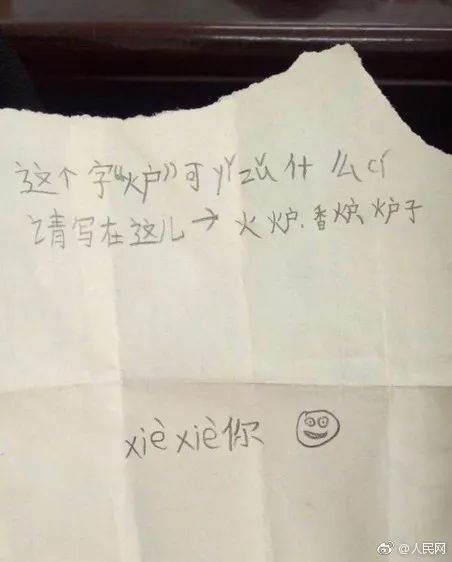 这个字“炉”可yǐzǔ什么cí
请写在这儿→火炉、香炉、炉子
xièxiè你
@人民网